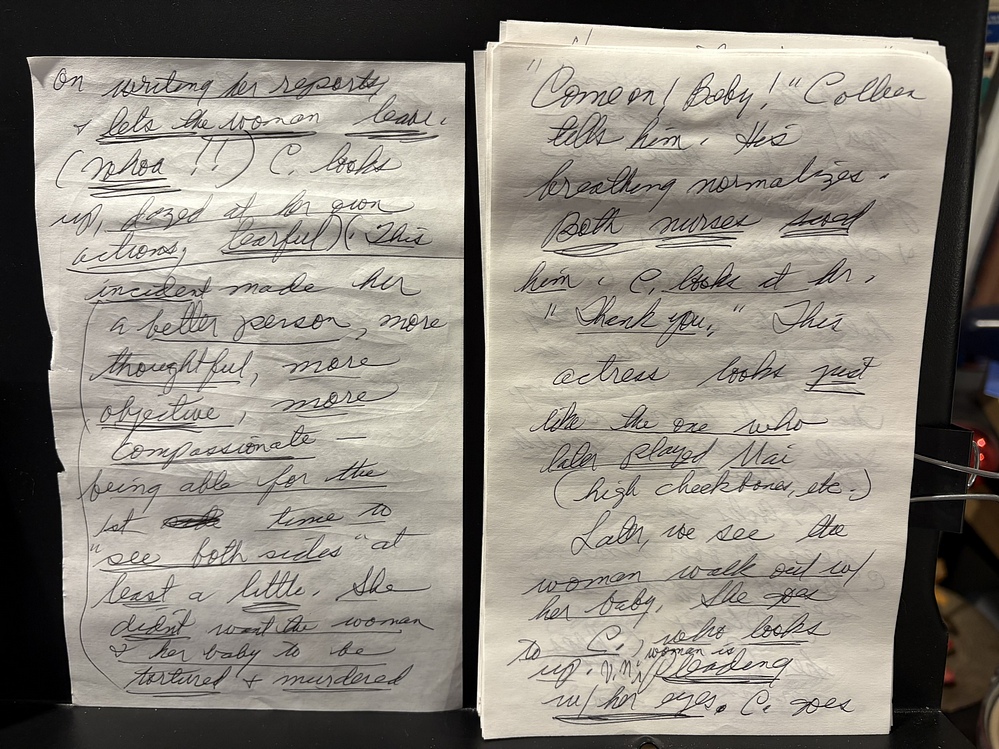 on writing her reports
& lets the woman leave.
(whoa !!) C. looks
up, dazed at her own
actions, tearful) (This
incident made her
a better person, more
thoughtful, more
objective, more
compassionate —
being able for the
1st time to
"see both sides" at
least a little. She
didn't want the woman
& her baby to be
tortured & murdered
"Come on! Baby!" Colleen
tells him. His
breathing normalizes.
Both nurses saved
him. C. looks at her.
"Thank you," This
actress looks just
like the one who
later played Mai
(high cheekbones, etc.)
Later, we see the
woman walk out w/
her baby. She goes
to C., who looks
up. V.N. woman is pleading
w/ her eyes. C. goes